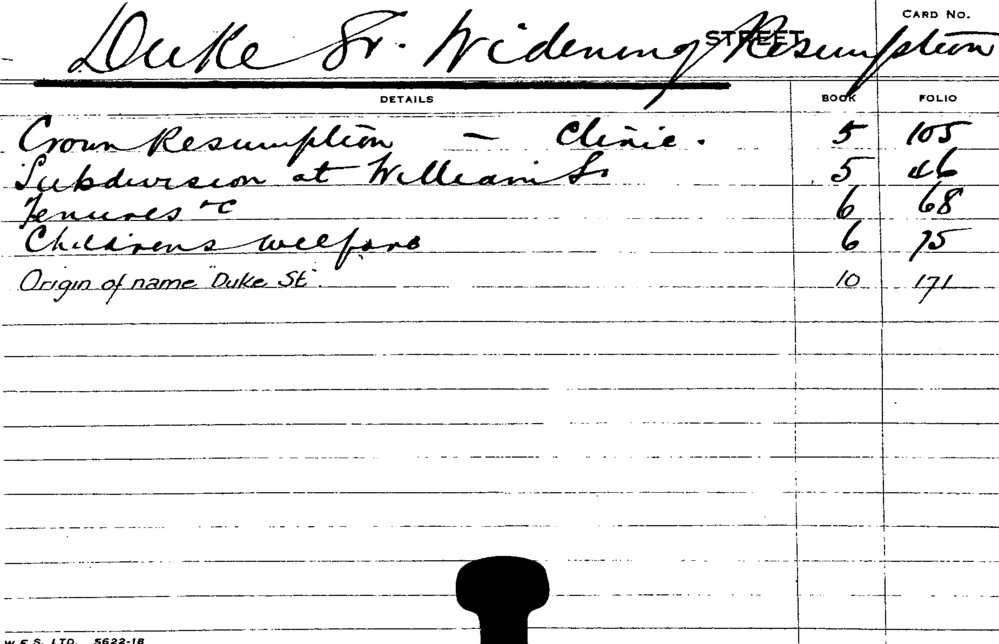 CARD NO.
Duke St. Widening Resumption
STREET
DETAILS BOOK FOLIO
Crown Resumption – Clinic. 5 105
Subdivision at William St 5 46
Tenures &c 6 68
Childrens Welfare 6 75
Origin of name "Duke St". 10 171
W.E.S. LTD. 5622-18